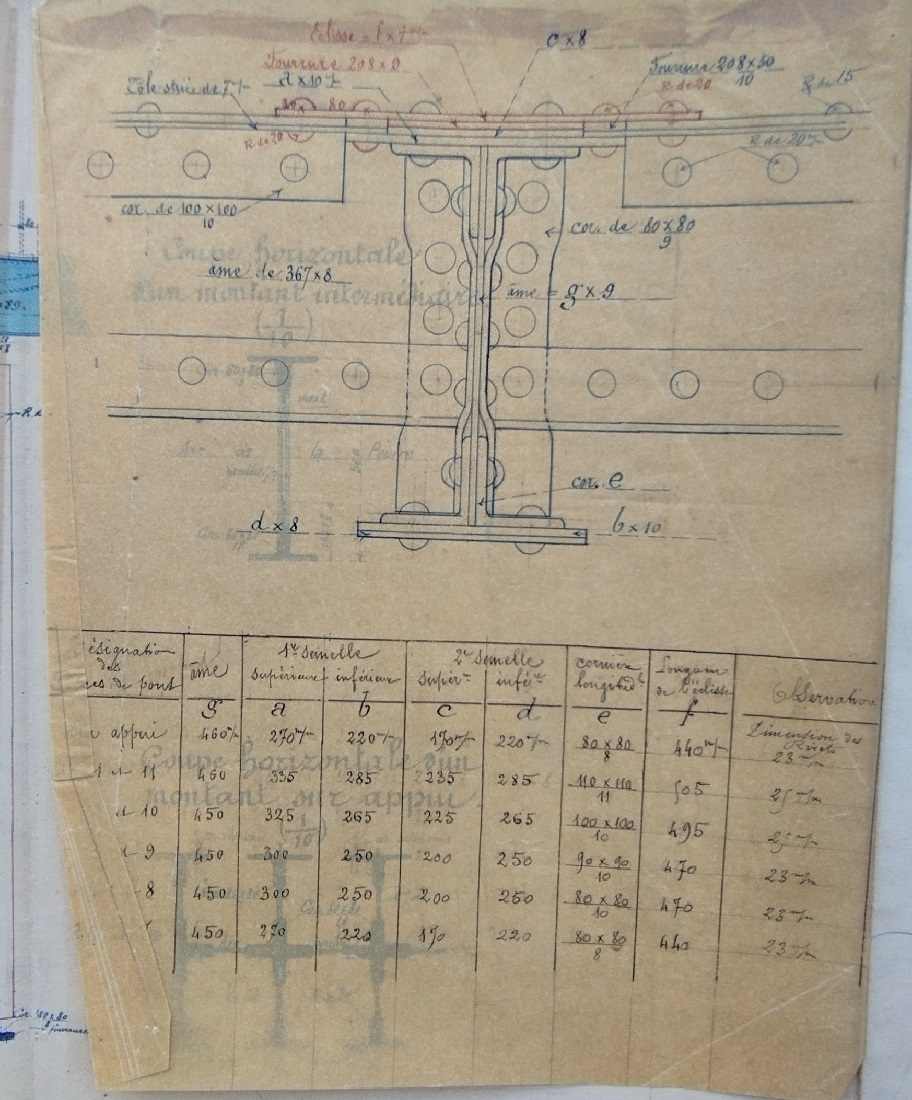 Eclisse = f × 7 m/m
c × 8
Fourrure 208 × 9
Fourrure 208 × 50
10
a × 10 m/m
R de 20
R de 15
Tôle striée de 7 m/m
80 80
R de 20
R de 20 m/m
cor. de 100 × 100
10
cor. de 80 × 80
9
Coupe horizontale
d'un montant intermédiaire
(1/10)
âme de 367 × 8
âme = g × 9
cor. e
d × 8
b × 10
ésignation
des
de pont
âme
g
1re semelle
supérieure
a
inférieure
b
2e semelle
supérre
c
infére
d
cornière
longitudle
e
Longueur
de l'éclisse
f
Observation
Dimension des
Rivets
appui 460 m/m 270 m/m 220 m/m 170 m/m 220 m/m 80 × 80/8 440 m/m 23 m/m
11 460 335 285 235 285 110 × 110/11 505 25 m/m
10 450 325 265 225 265 100 × 100/10 495 25 m/m
9 450 300 250 200 250 90 × 90/10 470 23 m/m
8 450 300 250 200 250 80 × 80/10 470 23 m/m
450 270 220 170 220 80 × 80/8 440 23 m/m
Coupe horizontale d'un
montant sur appui
(1/10)